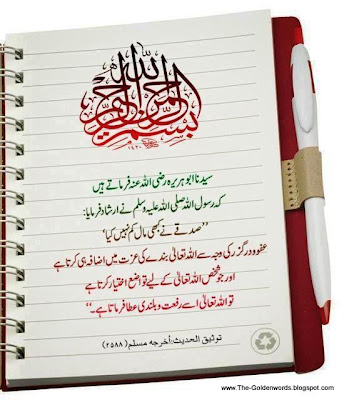 بسم الله الرحمن الرحيم
سیدنا ابو ہریرہ رضی اللہ عنہ فرماتے ہیں
کہ رسول اللہ صلی اللہ علیہ وسلم نے ارشاد فرمایا:
”صدقے نے کبھی مال کم نہیں کیا“
عفوودرگزر کی وجہ سے اللہ تعالیٰ بندے کی عزت میں اضافہ ہی کرتا ہے
اور جو شخص اللہ تعالیٰ کے لیے تواضع اختیار کرتا ہے
تو اللہ تعالیٰ اسے رفعت و بلندی عطا فرماتا ہے۔“
توثيق الحديث: أخرجه مسلم (٢٥٨٨)
www.The-Goldenwords.blogspot.com